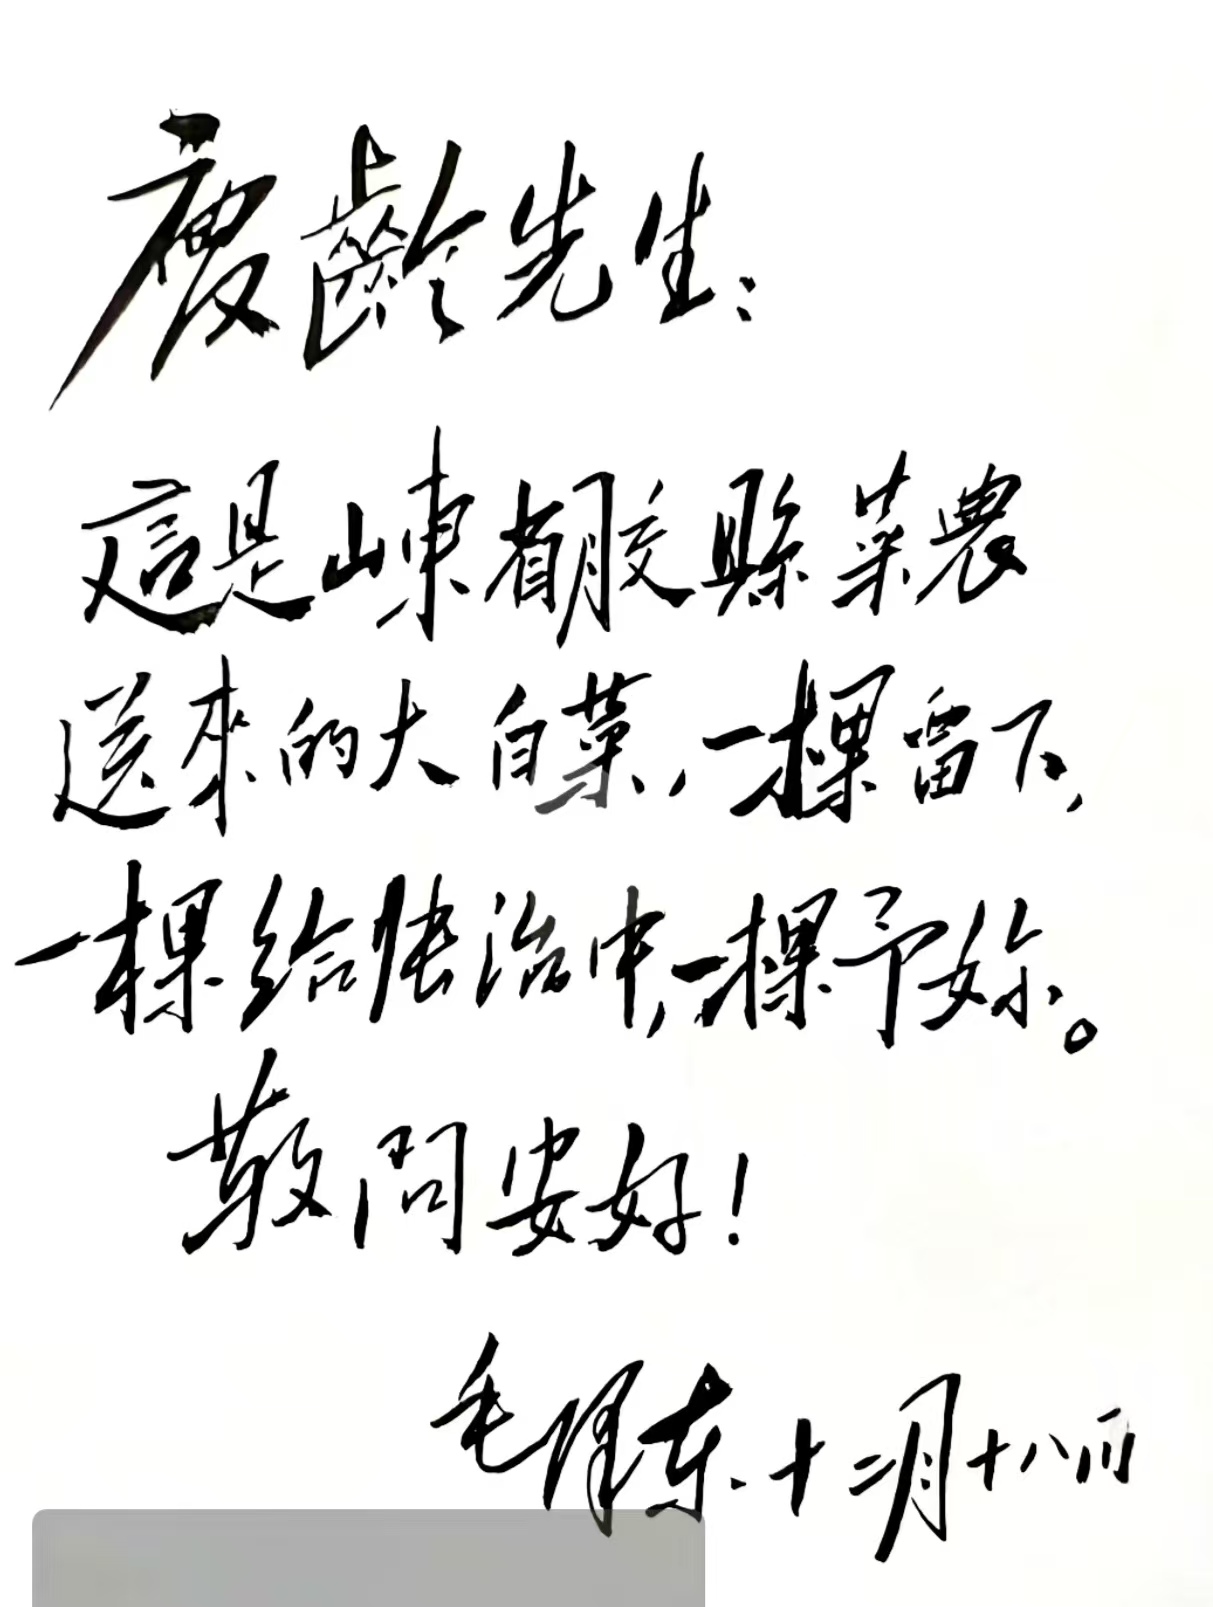 慶齡先生：
這是山東省胶縣菜農
送來的大白菜，一棵留下，
一棵給张治中，一棵予妳。
敬問安好！
毛泽东．十二月十八雨